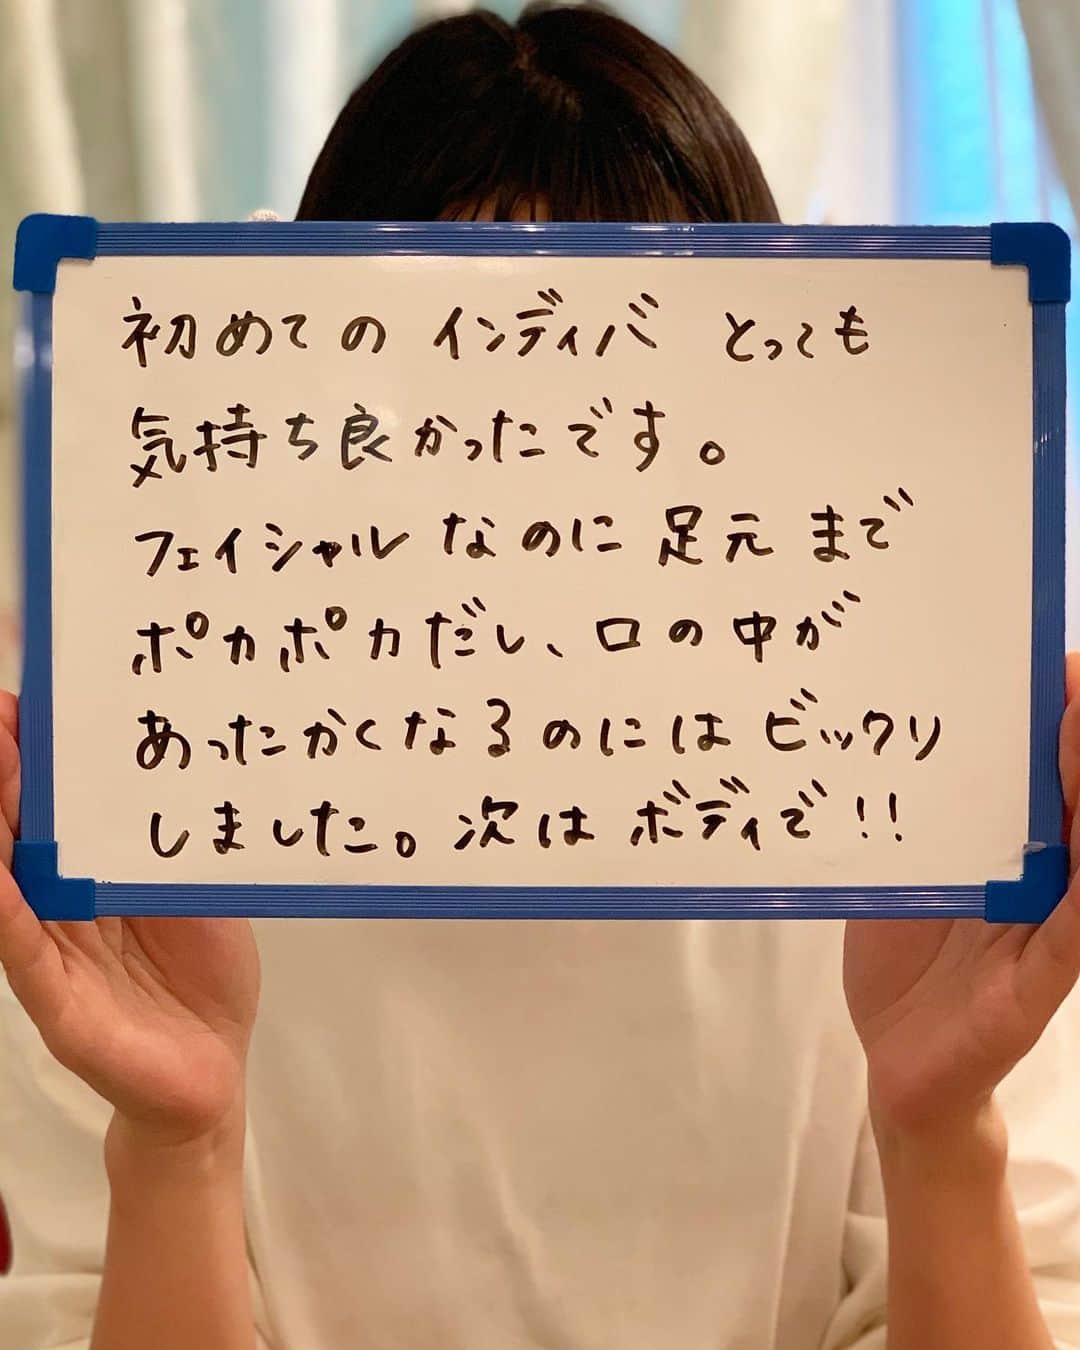 初めての インディバ とっても
気持ち良かったです。
フェイシャルなのに 足元まで
ポカポカだし、口の中が
あったかくなるのには ビックリ
しました。次は ボディで!!